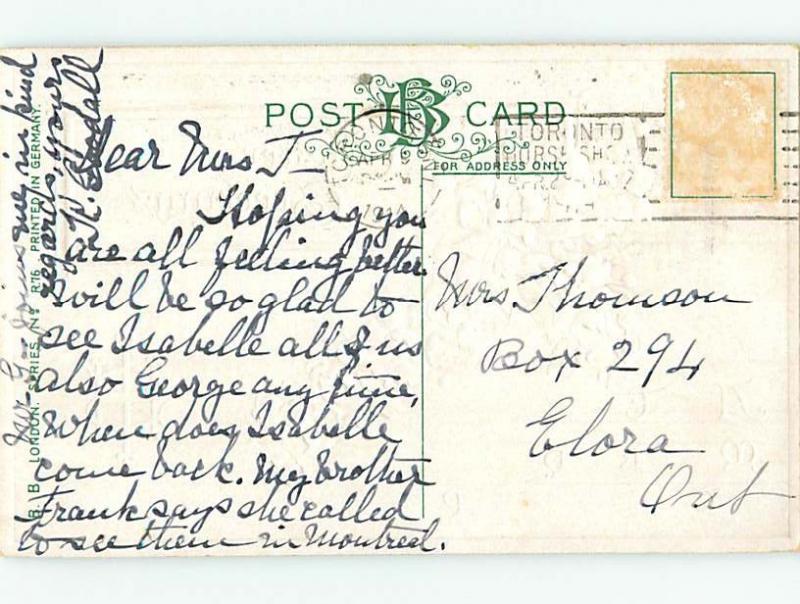 POST BB CARD
FOR ADDRESS ONLY
TORONTO
APR
TORONTO
HORSE SHOW
Dear Mrs T—
Hoping you
are all feeling better.
Will be so glad to
see Isabelle all of us
also George any time,
When does Isabelle
come back. My brother
Frank says she called
to see them in Montreal.
Mr. G. joins me in kind
regards, yours
K.
Mrs Thomson
Box 294
Elora
Ont
B. B. LONDON. SERIES No R76 PRINTED IN GERMANY.